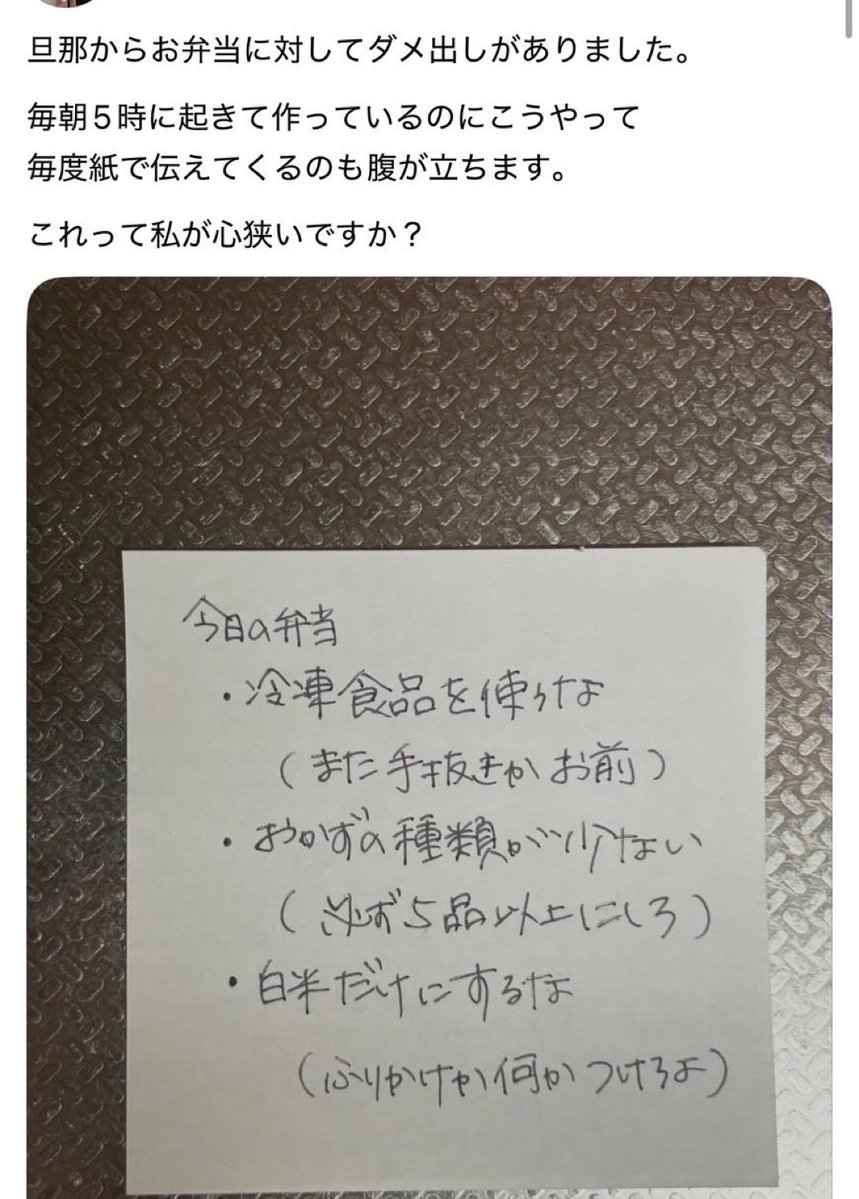 旦那からお弁当に対してダメ出しがありました。
毎朝5時に起きて作っているのにこうやって
毎度紙で伝えてくるのも腹が立ちます。
これって私が心狭いですか？
今日の弁当
・冷凍食品を使うな
（また手抜きかお前）
・おかずの種類が少ない
（必ず5品以上にしろ）
・白米だけにするな
（ふりかけか何かつけろよ）